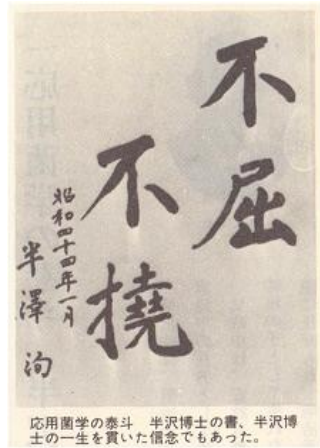 不屈
不撓
昭和四十四年一月
半澤洵
応用菌学の泰斗　半沢博士の書、半沢博
士の一生を貫いた信念でもあった。